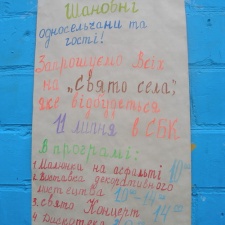 Шановні
односельчани та
гості!
Запрошуємо Всіх
на „Свято села",
яке відбудеться
11 липня в СБК
В програмі:
1 Малюнки на асфальті 10⁰⁰
2 Виставка декоративного
мистецтва 10⁰⁰-14⁰⁰
3. свято Концерт 14⁰⁰
4 Дискотека